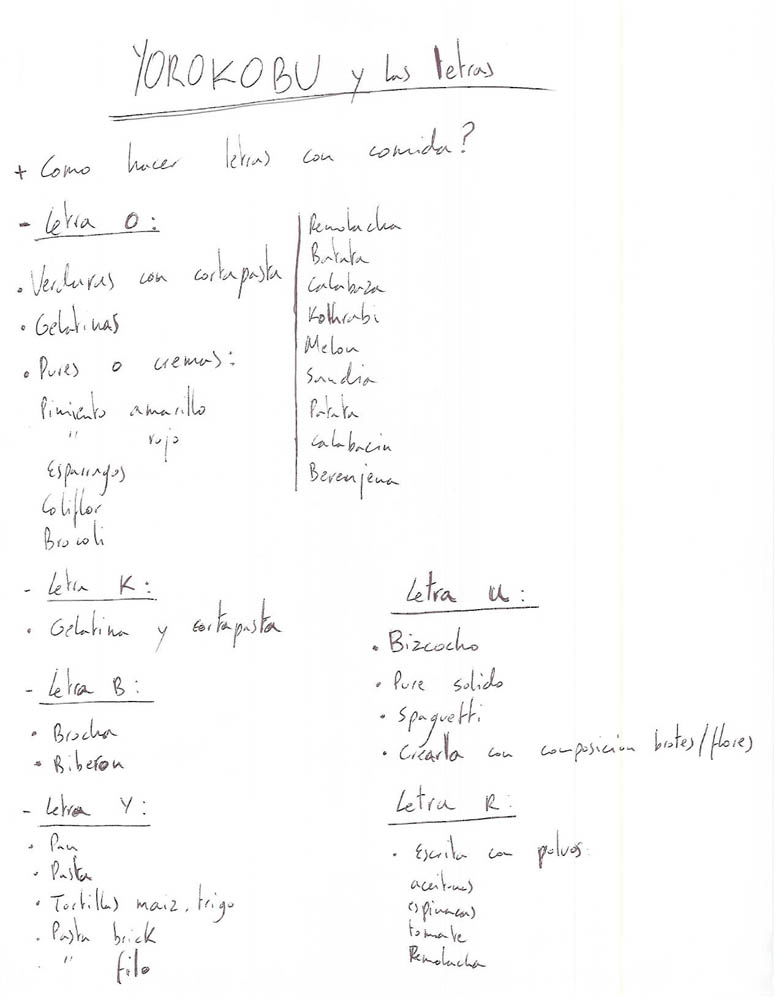 YOROKOBU y las letras
+ Como hacer letras con comida?
- Letra O:
• Verduras con cortapasta
• Gelatinas
• Pures o cremas:
Pimiento amarillo
" rojo
Esparragos
Coliflor
Brocoli
Remolacha
Batata
Calabaza
Kolhrabi
Melon
Sandia
Patata
Calabacin
Berenjena
- Letra K:
• Gelatina y cortapasta
- Letra B:
• Brocha
• Biberon
- Letra Y:
• Pan
• Pasta
• Tortillas maiz, trigo
• Pasta brick
" filo
Letra U:
• Bizcocho
• Pure solido
• Spaguetti
• Crearla con composicion brotes/flores
Letra R:
• Escrita con polvos:
aceitunas
espinacas
tomate
Remolacha